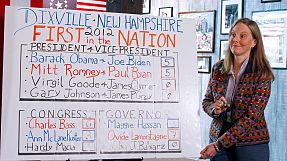 DIXVILLE-NEW HAMPSHIRE
FIRST 2012 IN THE NATION
PRESIDENT + VICE-PRESIDENT
Barack Obama + Joe Biden 5
Mitt Romney + Paul Ryan 5
Virgil Goode + James Clymer
Gary Johnson + James P. Gray
CONGRESS
Charles Bass
Ann McLane Kuster
Hardy Macia
GOVERNO
Maggie Hassan
Ovide Lamontagne